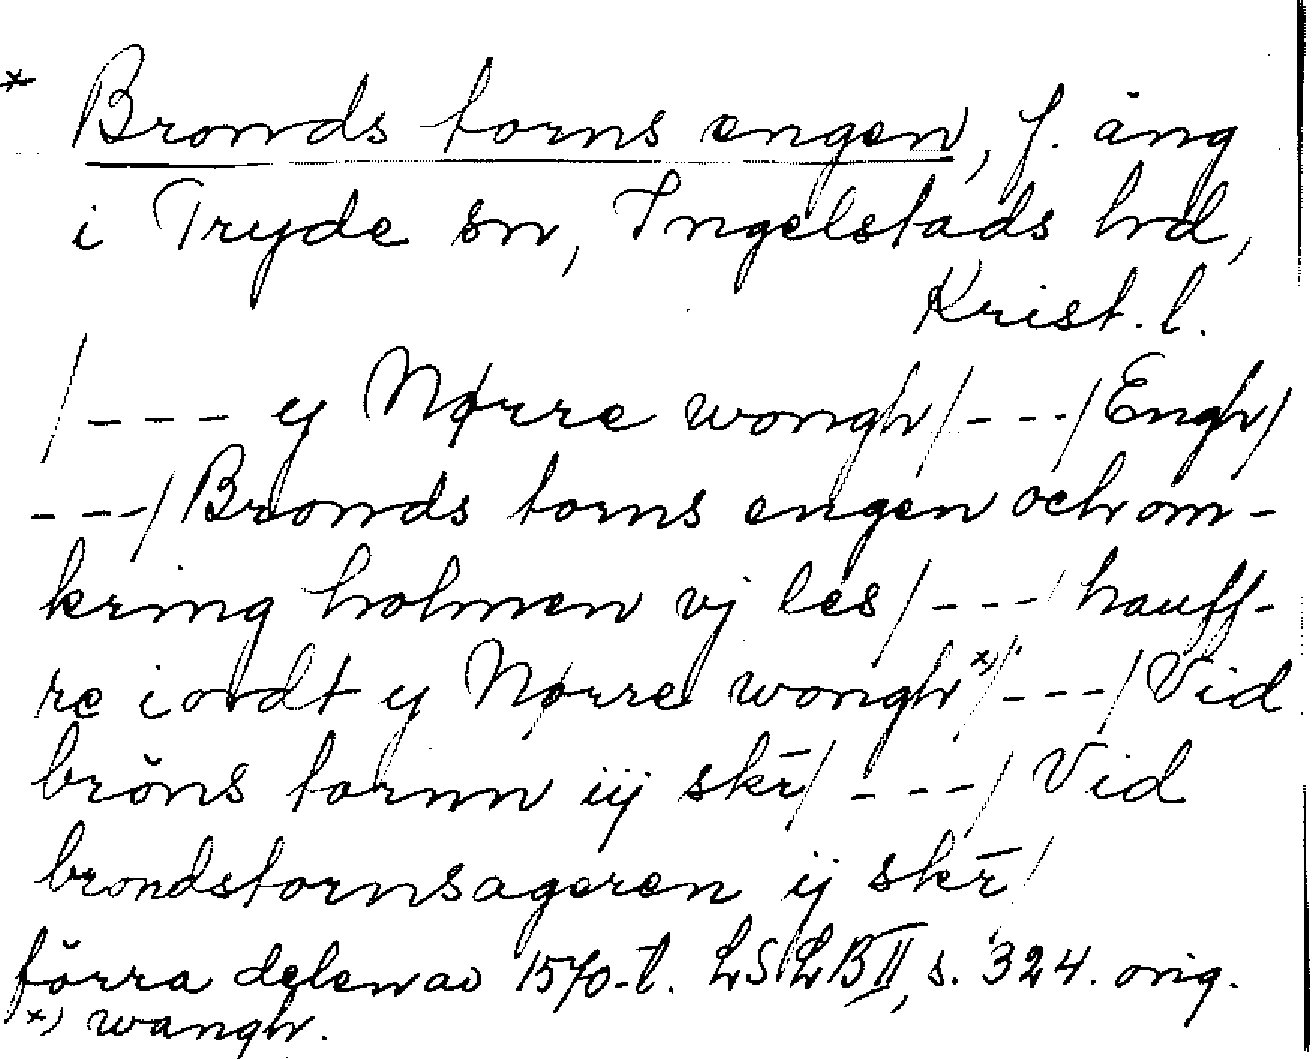 * Bronds torns engen, f. äng
i Tryde sn, Ingelstads hd,
Krist. l.
/--- ij Nørre wongh/---/Engh/
---/Bronds torns engen och om-
kring holmen vj les/---/hauff-
re iordt ij Nørre wongh*)/---/Vid
bröns tornn iij skr̄/---/Vid
brondstornsageren ij skr̄/
förra delen av 1570-t. LSLB II, s. 324. orig.
*) wangh.